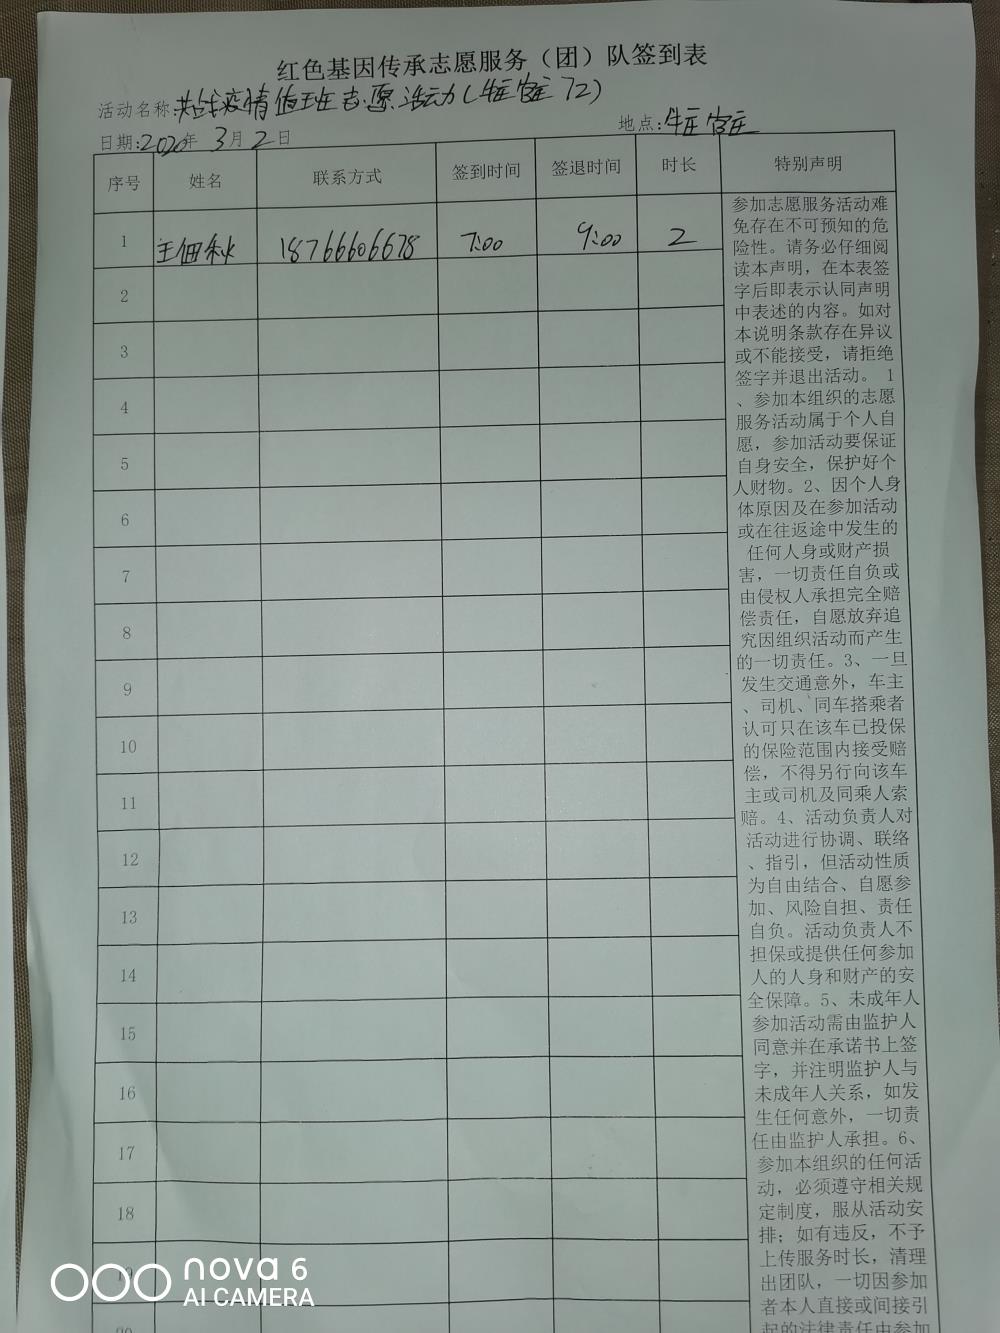 红色基因传承志愿服务（团）队签到表
活动名称:共战疫情值班志愿活动(
日期:2020年 3月 2日
地点:
序号 姓名 联系方式 签到时间 签退时间 时长 特别声明
1 王佃秋 18766606678 7:00 9:00 2
2
3
4
5
6
7
8
9
10
11
12
13
14
15
16
17
18
19
20
参加志愿服务活动难
免存在不可预知的危
险性。请务必仔细阅
读本声明，在本表签
字后即表示认同声明
中表述的内容。如对
本说明条款存在异议
或不能接受，请拒绝
签字并退出活动。 1
、参加本组织的志愿
服务活动属于个人自
愿，参加活动要保证
自身安全，保护好个
人财物。2、因个人身
体原因及在参加活动
或在往返途中发生的
任何人身或财产损
害，一切责任自负或
由侵权人承担完全赔
偿责任，自愿放弃追
究因组织活动而产生
的一切责任。3、一旦
发生交通意外，车主
、司机、同车搭乘者
认可只在该车已投保
的保险范围内接受赔
偿，不得另行向该车
主或司机及同乘人索
赔。4、活动负责人对
活动进行协调、联络
、指引，但活动性质
为自由结合、自愿参
加、风险自担、责任
自负。活动负责人不
担保或提供任何参加
人的人身和财产的安
全保障。5、未成年人
参加活动需由监护人
同意并在承诺书上签
字，并注明监护人与
未成年人关系，如发
生任何意外，一切责
任由监护人承担。6、
参加本组织的任何活
动，必须遵守相关规
定制度，服从活动安
排；如有违反，不予
上传服务时长，清理
出团队，一切因参加
者本人直接或间接引
起的法律责任由参加
nova 6
AI CAMERA